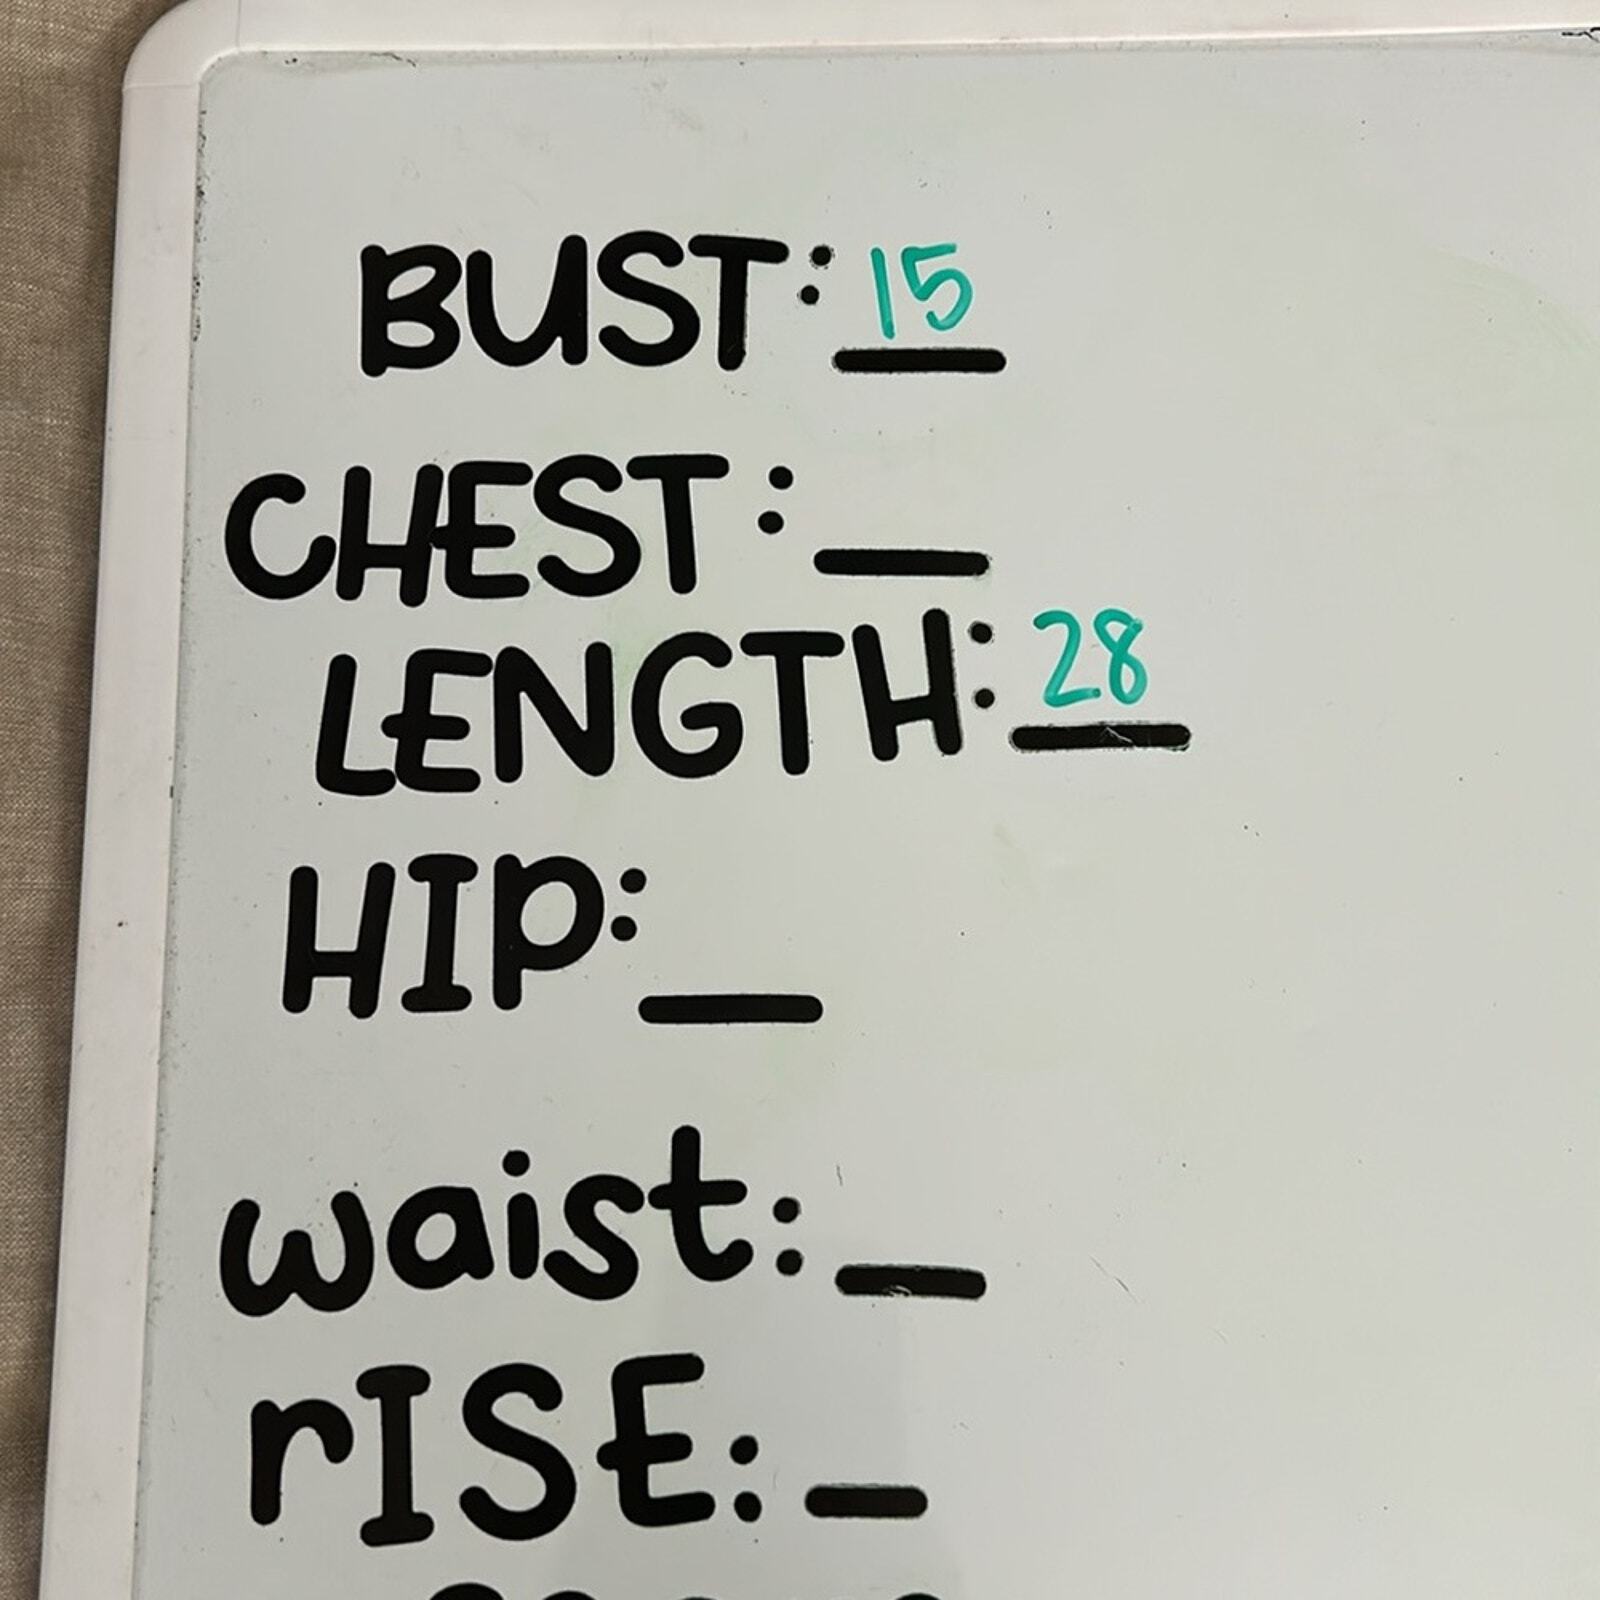 BUST: 15
CHEST: __
LENGTH: 28
HIP: __
waist: __
rISE: __